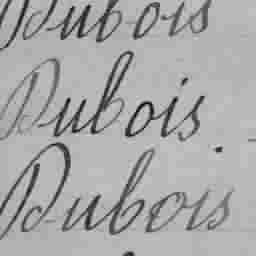 Dubois
Dubois.
Dubois